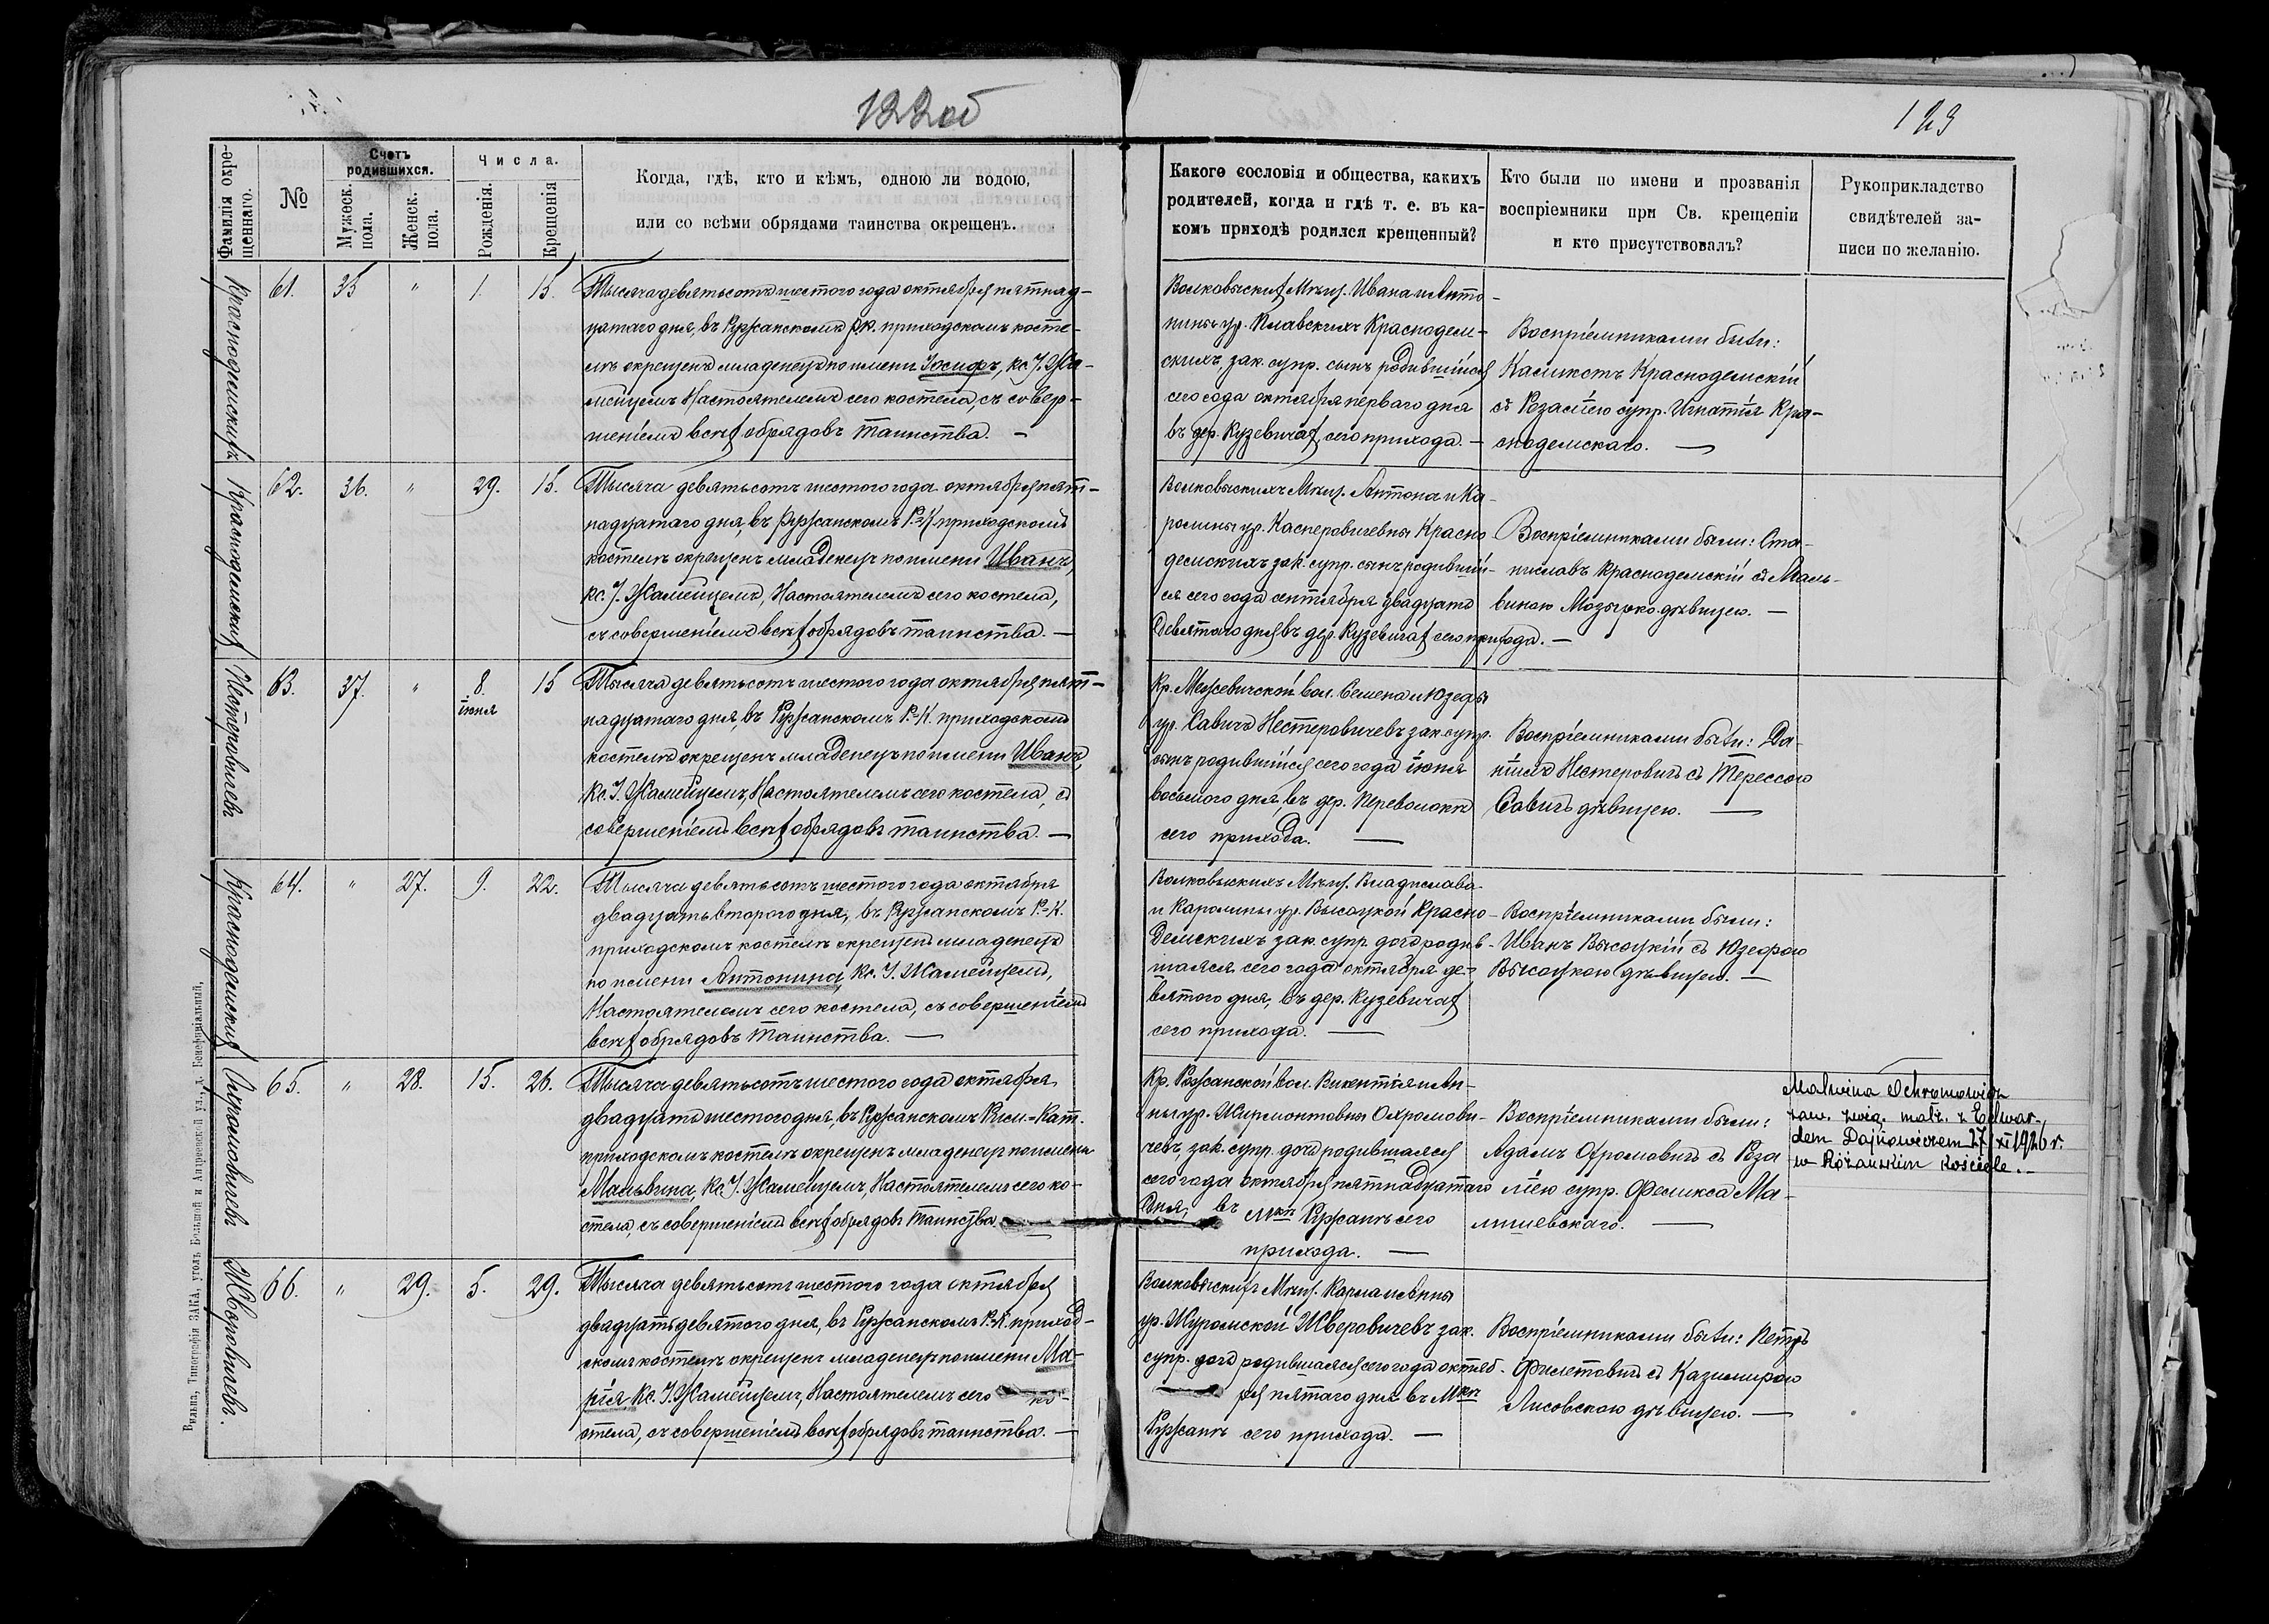 122об
123
Фамилія окре-
щеннаго.
№
Счетъ
родившихся.
Мужеск.
пола.
Женск.
пола.
Числа.
Рожденія.
Крещенія
Когда, гдѣ, кто и кѣмъ, одною ли водою,
или со всѣми обрядами таинства окрещенъ.
Какого сословія и общества, какихъ
родителей, когда и гдѣ т. е. въ ка-
комъ приходѣ родился крещенный?
Кто были по имени и прозванія
воспріемники при Св. крещеніи
и кто присутствовалъ?
Рукоприкладство
свидѣтелей за-
писи по желанію.
Красподемскихъ
61.
35
"
1.
15.
Тысяча девятьсотъ шестого года октября пятнад-
цатаго дня, въ Ружанскомъ р.к. приходскомъ косте-
лѣ окрещенъ младенецъ по имени Іосифъ, кс. І. Жа-
мейцемъ Настоятелемъ сего костела, съ совер-
шеніемъ всѣхъ обрядовъ таинства. —
Волковыскихъ Мѣщ. Ивана и Анто-
нины ур. Клавскихъ Красподем-
скихъ зак. супр. сынъ родившійся
сего года октября перваго дня
въ дер. Кузевичахъ сего прихода. —
Воспріемниками были:
Каликстъ Красподемскій
съ Розаліею супр. Игнатія Кра-
сподемскаго. —
Красподемскихъ
62.
36.
"
29.
15.
Тысяча девятьсотъ шестого года октября пят-
надцатаго дня, въ Ружанскомъ Р.-К. приходскомъ
костелѣ окрещенъ младенецъ по имени Иванъ,
кс. І. Жамейцемъ, Настоятелемъ сего костела,
съ совершеніемъ всѣхъ обрядовъ таинства. —
Волковыскихъ Мѣщ. Антона и Ка-
ролины ур. Касперовичевны Краспо-
демскихъ зак. супр. сынъ родившій-
ся сего года сентября двадцать
девятаго дня въ дер. Кузевичахъ сего прихода. —
Воспріемниками были: Ста-
ниславъ Красподемскій съ Маль-
виною Мозырко дѣвицею. —
Нестеровичевъ
63.
37.
"
8.
іюня
15
Тысяча девятьсотъ шестого года октября пят-
надцатаго дня, въ Ружанскомъ Р.-К. приходскомъ
костелѣ окрещенъ младенецъ по имени Иванъ,
Кс. І. Жамейцемъ, Настоятелемъ сего костела, съ
совершеніемъ всѣхъ обрядовъ таинства. —
Кр. Межевичской вол. Семена и Юзефы
ур. Савичъ Нестеровичевъ зак. супр.
сынъ родившійся сего года іюня
восьмого дня, въ дер. Переволокѣ
сего прихода. —
Воспріемниками были: Да-
ніилъ Нестеровичъ съ Терессою
Савичъ дѣвицею. —
Красподемскихъ
64.
"
27.
9.
22.
Тысяча девятьсотъ шестого года октября
двадцать второго дня, въ Ружанскомъ Р.-К.
приходскомъ костелѣ окрещенъ младенецъ
по имени Антонина, Кс. І. Жамейцемъ,
Настоятелемъ сего костела, съ совершеніемъ
всѣхъ обрядовъ таинства. —
Волковыскихъ Мѣщ. Владислава
и Каролины ур. Высоцкой Краспо-
демскихъ зак. супр. дочь родив-
шаяся сего года октября де-
вятого дня, въ дер. Кузевичахъ
сего прихода. —
Воспріемниками были:
Иванъ Высоцкій съ Юзефою
Высоцкою дѣвицею. —
Охромовичевъ
65.
"
28.
15.
26.
Тысяча девятьсотъ шестого года октября
двадцать шестого дня, въ Ружанскомъ Рим.-Кат.
приходскомъ костелѣ окрещенъ младенецъ по имени
Мальвина, Кс. І. Жамейцемъ, Настоятелемъ сего ко-
стела, съ совершеніемъ всѣхъ обрядовъ таинства. —
Кр. Ружанской вол. Викентія и Ан-
ны ур. Ширмонтовны Охромови-
чевъ, зак. супр. дочь родившаяся
сего года октября пятнадцатаго
дня, въ Мкѣ Ружанѣ сего
прихода. —
Воспріемниками были:
Адамъ Охромовичъ съ Роза-
ліею супр. Феликса Ма-
лишевскаго. —
Malwina Ochromowicz
zaw. zwią. małż. z Edwar-
dem Dajnowiczem 27/XI 1926 r.
w Różańskim kościele. —
Жверовичевъ
66.
"
29.
5.
29.
Тысяча девятьсотъ шестого года октября
двадцать девятого дня, въ Ружанскомъ Р.-К. приход-
скомъ костелѣ окрещенъ младенецъ по имени Ма-
рія Кс. І. Жамейцемъ, Настоятелемъ сего ко-
стела, съ совершеніемъ всѣхъ обрядовъ таинства. —
Волковыскихъ Мѣщ. Карла и Анны
ур. Журомской Жверовичевъ зак.
супр. дочь родившаяся сего года октяб-
ря пятаго дня въ Мкѣ
Ружанѣ сего прихода. —
Воспріемниками были: Петръ
Филетовичъ съ Казимирою
Лисовскою дѣвицею. —
Вильна, Типографія ЗАКА, уголъ Большой и Андреевской ул., д. Бонифаціальный.